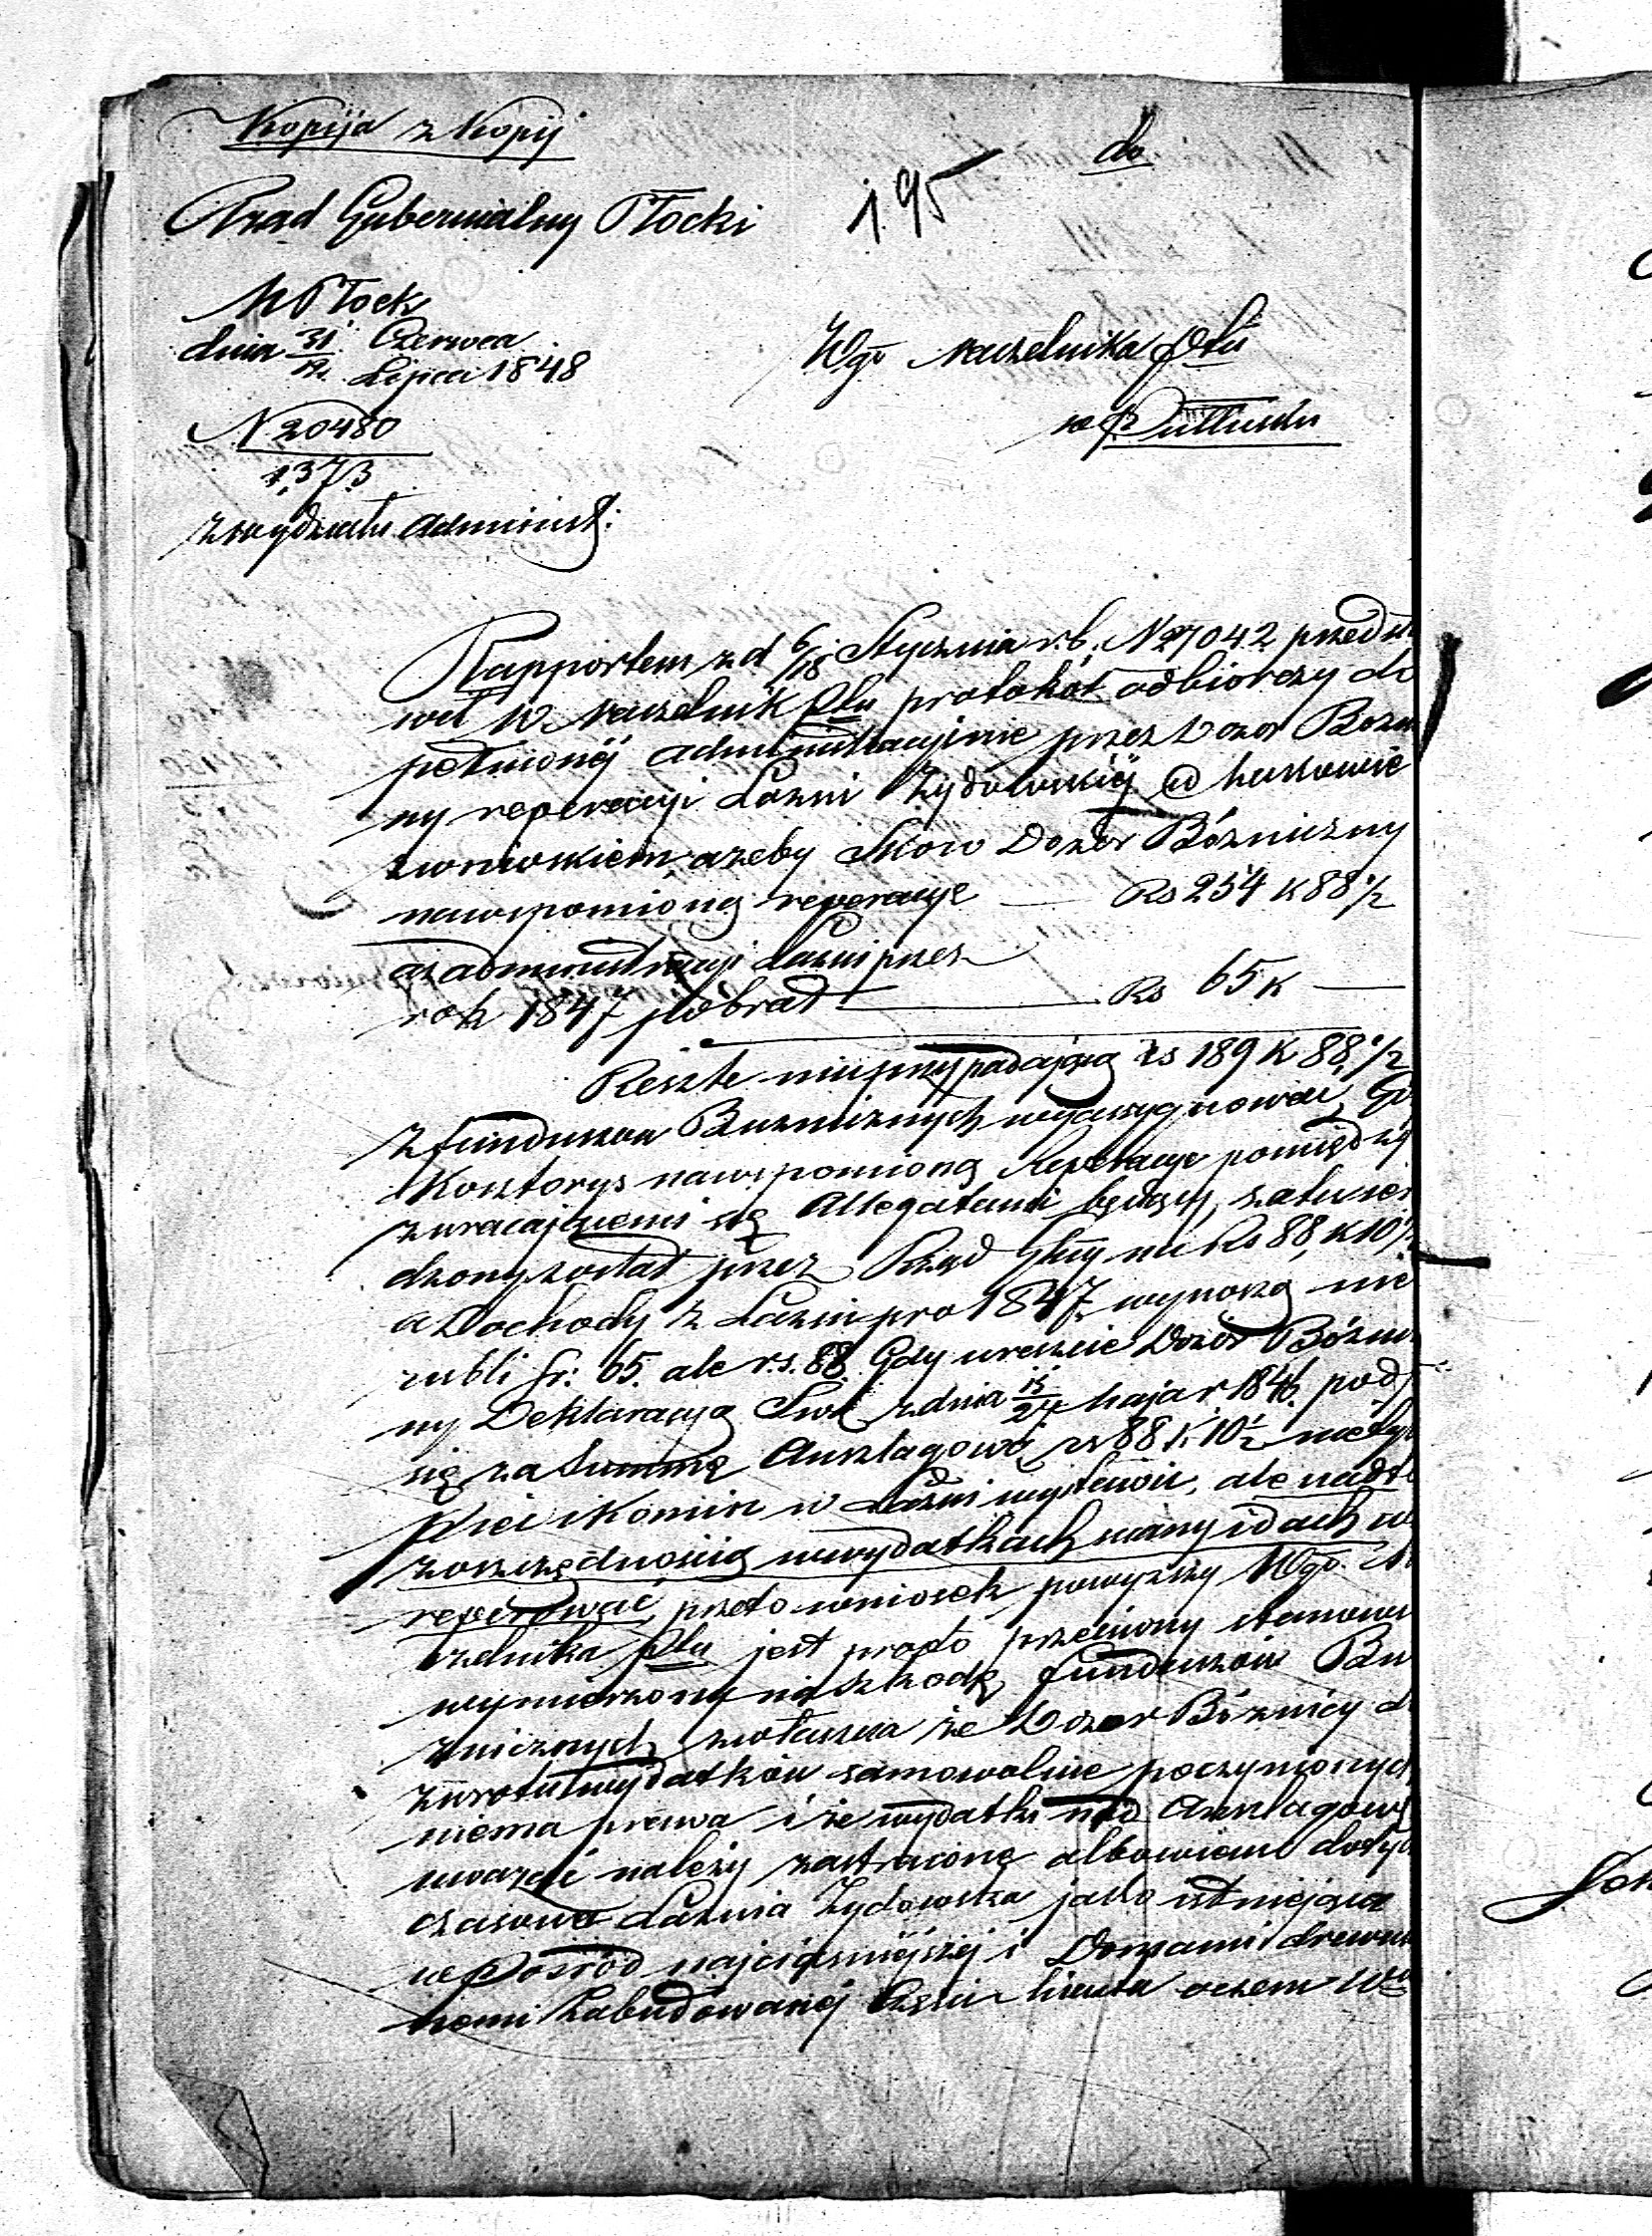 Kopija z Kopij
do
195
Rząd Gubernialny Płocki
W Płocku
dnia 31 Czerwca
12 Lipca 1848
Wgo Naczelnika Ptu
w Pułtusku
N 20480
1,373
z wydziału Administ:
Rapportem z d 6/18 Stycznia r.b. N 27042 przedst
wił W. Naczelnik Ptu protokół odbiorczy do
pełnionéj administracyjnie przez Dozor Bozni
ny reperacyi Łazni Żydowskiéj w Makowie
z wnioskiem, azeby Dozór Bóżniczny
na wspomnioną reperacyę — Rs 254 k 88 1/2
a z administracyi Łazni przez
rok 1847 pobrał — Rs 65 k —
Resztę mu przypadającą rs 189 k 88 1/2
z funduszow Buzniznych wyassygnować, Gd
Kosztorys na wspomnioną Reperacye pomiędzy
zwracającemi się Allegatami będący, zatwier
dzony został przez Rząd Glny na Rs 88, k 10 1/2
a Dochody z Łazni pro 1847 wynoszą nie
rubli sr: 65. ale r.s. 88. Gdy wreszcie Dozór Bóżni
ny Deklaracyą Swą z dnia 15/27 Maja r 1846 podj
się za Summę Anszlagową rs 88 k 10 1/2 nietyl
piec i Komin w Łaźni wystawić, ale nadto
z oszczędnością w wydatkach miany i dach w
reperować, przeto wniosek powyższy Wgo Na
czelnika Ptu jest proto przeciwny stanowi
wymierzony na szkodę funduszów Bu
znicznych zwłaszcza że Dozor Bóżnicy do
zwrotu wydatków samowolnie poczynionych
niema prawa i że wydatki nad Anszlagowe
uważać należy zastracone albowiem dotych
czasowa Łaznia Żydowska jako istniejąca
w pośród najciaśniéjszéj i Domami drewni
nemi Zabudowanéj Części Miasta oczem Wo